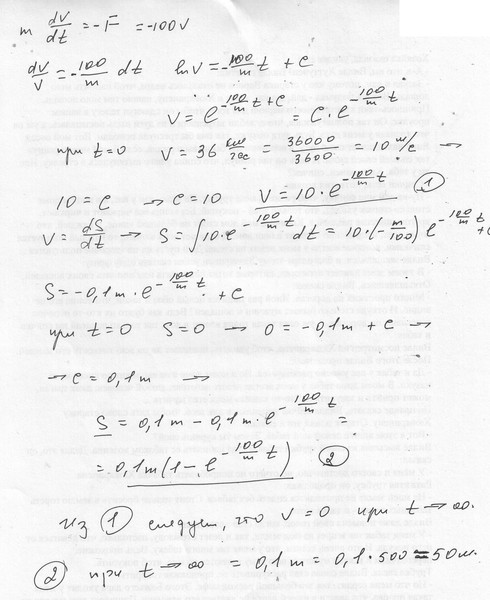 m dv/dt = -F = -100v
dv/v = -100/m dt   ln v = -100/m t + c
v = e^(-100/m t + c) = c · e^(-100/m t)
при t=0   v = 36 км/час = 36000/3600 = 10 м/с →
10 = c → c = 10   v = 10 · e^(-100/m t)   ①
v = dS/dt → S = ∫10·e^(-100/m t) dt = 10·(-m/100) e^(-100/m t) + c
S = -0,1m · e^(-100/m t) + c
при t=0   S=0 → 0 = -0,1m + c →
→ c = 0,1m →
S = 0,1m - 0,1m·e^(-100/m t) =
= 0,1m(1 - e^(-100/m t))   ②
Из ① следует, что v = 0 при t → ∞.
② при t → ∞ = 0,1m = 0,1·500 = 50м.